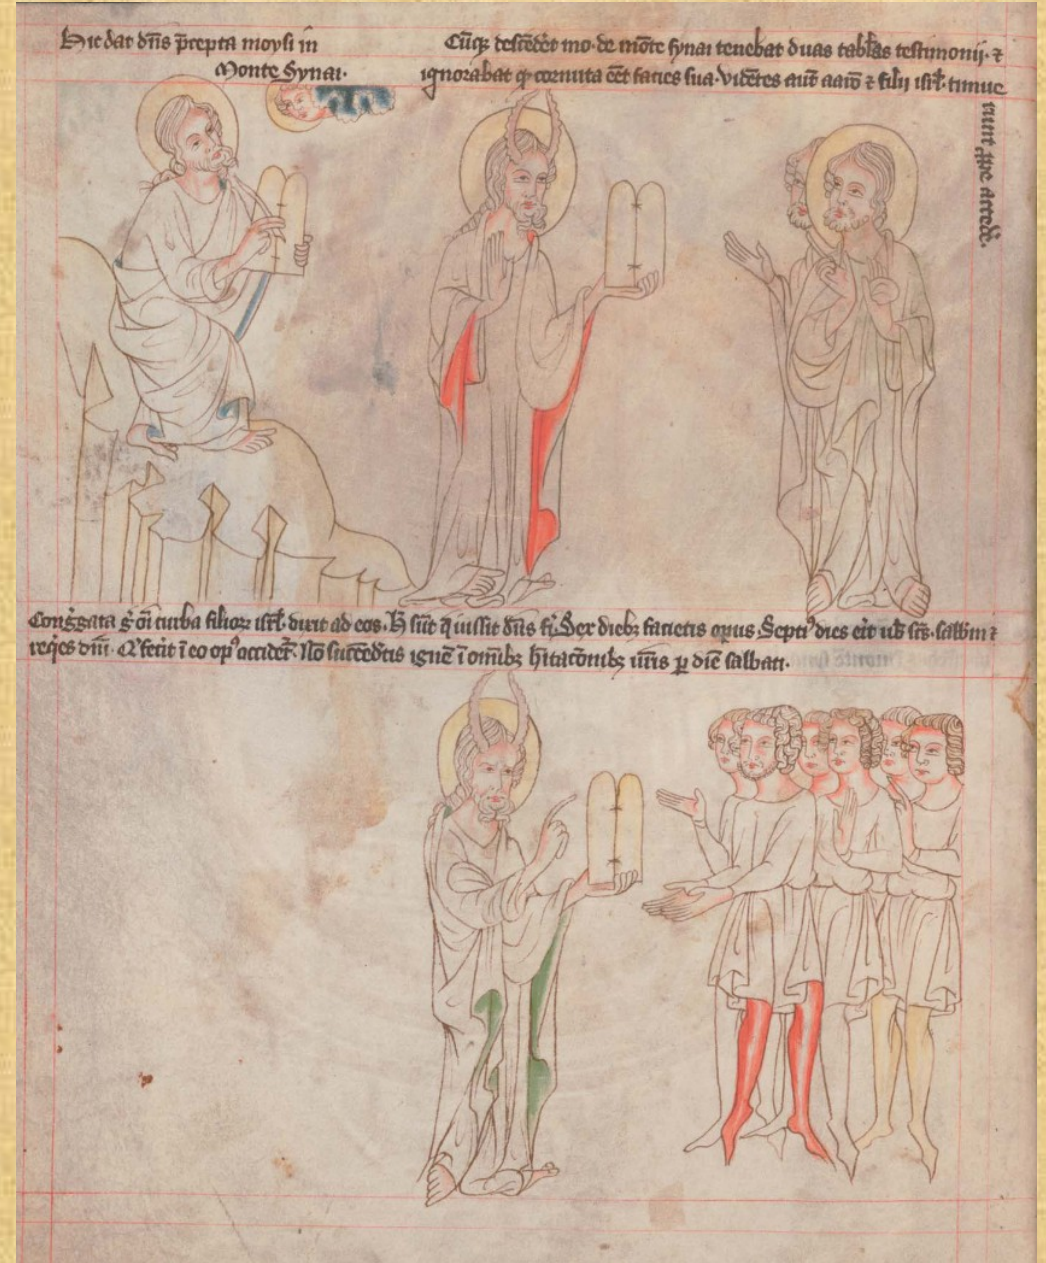 Hic dat dn̄s p̄cepta moysi in
Monte Synai.
Cūq; descēdēt mo. de mōte synai tenebat duas tabl̄as testimonij. ⁊
ignorabat q̄ cornuta eēt facies sua. Vidētes aūt aarō ⁊ filij isrl̄. timue
runt ꝓpe accedē.
Congͣgata gͥ oī turba filioꝝ isrl̄. dixit ad eos. H̄ sūt q̄ iussit dn̄s fi̇. Sex dieb; facietis opus. Septiꝰ dies erit uob̄ scs̄. sabbm̄ ⁊
req̇es dn̄i. Q̇ fec̄it ī eo opꝰ occidet᷑. Nō succēdetis ignē ī om̄ib; h̄itacōnib; ur̄is ꝑ diē sabbati.